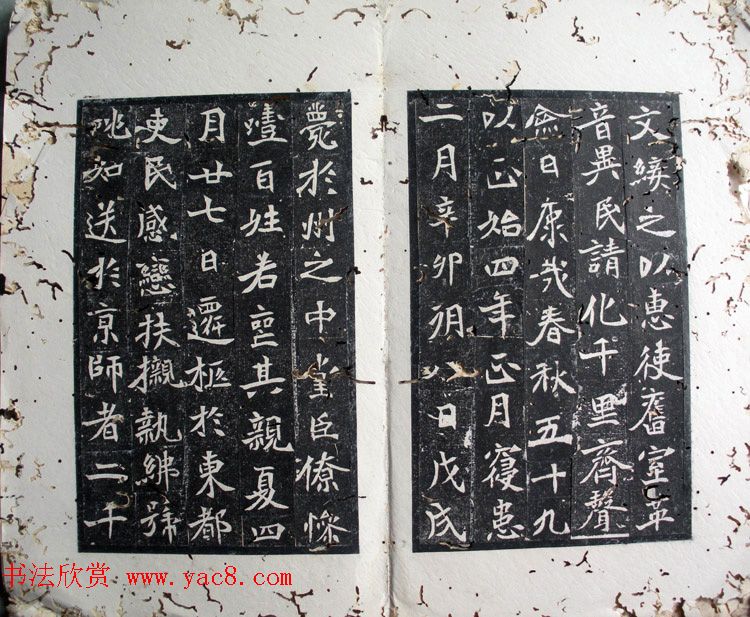 文綏之以惠使舊室革
音異民請化千里齊聲
僉曰康哉春秋五十九
以正始四年正月寑患
二月辛卯朔八日戊戌
薨於州之中堂臣僚慘
噎百姓若喪其親夏四
月廿七日遷柩於東都
吏民感戀扶櫬執紼號
咷如送於京師者二千
书法欣赏 www.yac8.com